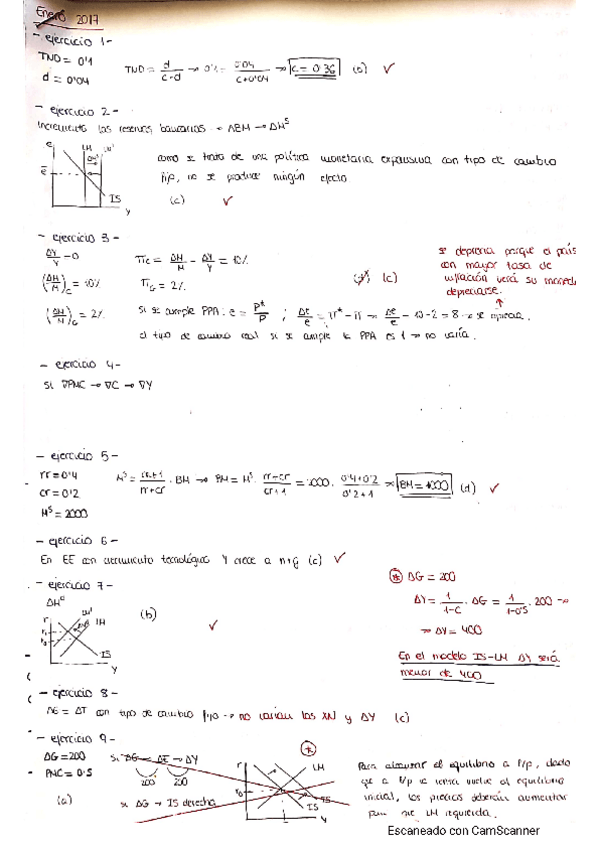 Enero 2017
- ejercicio 1 -
TND = 0'1
d = 0'04
TND = d/(c+d) → 0'1 = 0'04/(c+0'04) → c = 0'36 (b) ✓
- ejercicio 2 -
Incremento las reservas bancarias → ΔBM → ΔM^S
e
LM LM'
ē
IS
y
como se trata de una política monetaria expansiva con tipo de cambio
fijo, no se produce ningún efecto
(c) ✓
- ejercicio 3 -
ΔY/Y = 0
(ΔM/M)_C = 10%
(ΔM/M)_G = 2%
π_C = ΔM/M - ΔY/Y = 10%
π_G = 2%
(c)
se deprecia porque el país
con mayor tasa de
inflación verá su moneda
depreciarse.
si se cumple PPA: e = P*/P ; Δe/e = π* - π → Δe/e = 10 - 2 = 8 → se aprecia.
el tipo de cambio real si se cumple la PPA es 1 → no varía.
- ejercicio 4 -
Si ∇PMC → ∇C → ∇Y
- ejercicio 5 -
rr = 0'4
cr = 0'2
M^S = 2000
M^S = (cr+1)/(rr+cr) · BM → BM = M^S · (rr+cr)/(cr+1) = 2000 · (0'4+0'2)/(0'2+1) → BM = 1000 (d) ✓
- ejercicio 6 -
En EE con crecimiento tecnológico Y crece a n+g (c) ✓
- ejercicio 7 -
ΔM^d
r
LM' LM
IS
y
(b)
✓
* ΔG = 200
ΔY = 1/(1-c) · ΔG = 1/(1-0'5) · 200 →
→ ΔY = 400
En el modelo IS-LM ΔY será
menor de 400
- ejercicio 8 -
ΔG = ΔT con tipo de cambio fijo → no varían las XN y ΔY (c)
- ejercicio 9 -
ΔG = 200
PMC = 0'5
(a)
si ΔG = ΔT → ΔY
200 200
si ΔG → IS derecha
*
r
LM
IS'
IS
y
Para alcanzar el equilibrio a l/p, dado
que a l/p la renta vuelve al equilibrio
inicial, los precios deberán aumentar
para que LM izquierda.
Escaneado con CamScanner